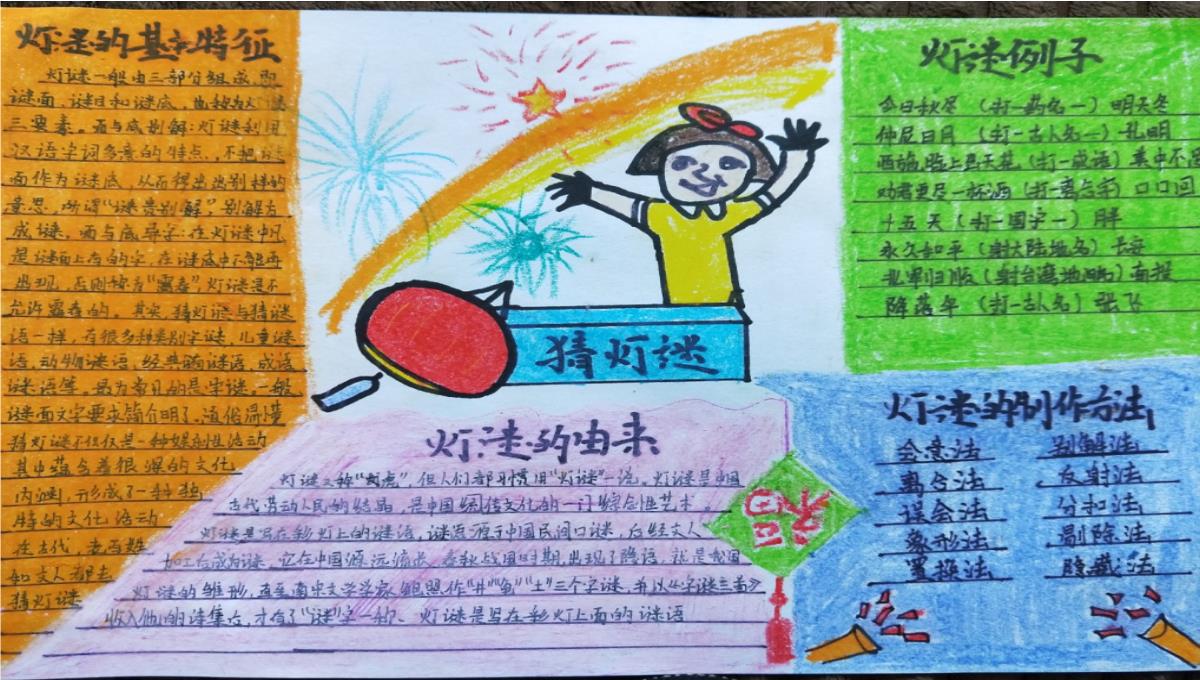 灯迷的基本特征
灯谜一般由三部分组成，即
谜面、谜目和谜底，也称为灯谜
三要素。面与底别解：灯谜利用
汉语字词多意的特点，不把谜
面作为谜底，从而得出出别样的
意思，所谓“谜贵别解”，别解方
成谜。面与底异字：在灯谜中凡
是谜面上有的字，在谜底中不能再
出现，否则称为“露春”，灯谜是不
允许露春的。其实，猜灯谜与猜谜
语一样，有很多种类别字谜，儿童谜
语，动物谜语，经典谜语，成语
谜语等，最为常见的是字谜。一般
谜面文字要求简介明了，通俗
猜灯谜不仅仅是一种娱乐性活动
其中蕴含着很深的文化
内涵，形成了一种独
特的文化活动
在古代，老百姓
如文人都去
猜灯谜
猜灯谜
灯迷的由来
灯谜又称“文虎”，但人们都习惯用“灯谜”一说。灯谜是中国
古代劳动人民的结晶，是中国传统文化的一门综合性艺术。
灯谜是写在彩灯上的谜语，谜语源于中国民间口谜，后经文人
加工右成为谜。它在中国源远流长，春秋战国时期，出现了隐语，就是我国
灯谜的雏形，直至南宋文学家鲍照作“井”“龟”“土”三个字谜，并以《字谜三首》
收入他的诗集内，才有了“谜”字一称、灯谜是写在彩灯上面的谜语
灯谜例子
今日秋尽（打一药名一）明天冬
仲尼日月（打一古人名一）孔明
（打一成语）美中不
劝君更尽一杯酒（打一离合字）口口回
十五天（打一国字一）胖
永久和平（射大陆地名）长安
乱军归顺（射台湾地名）南投
降落伞（打一古人名）张飞
灯谜的制作方法
会意法 别解法
离合法 反射法
误会法 分扣法
象形法 剔除法
置换法 隐藏法